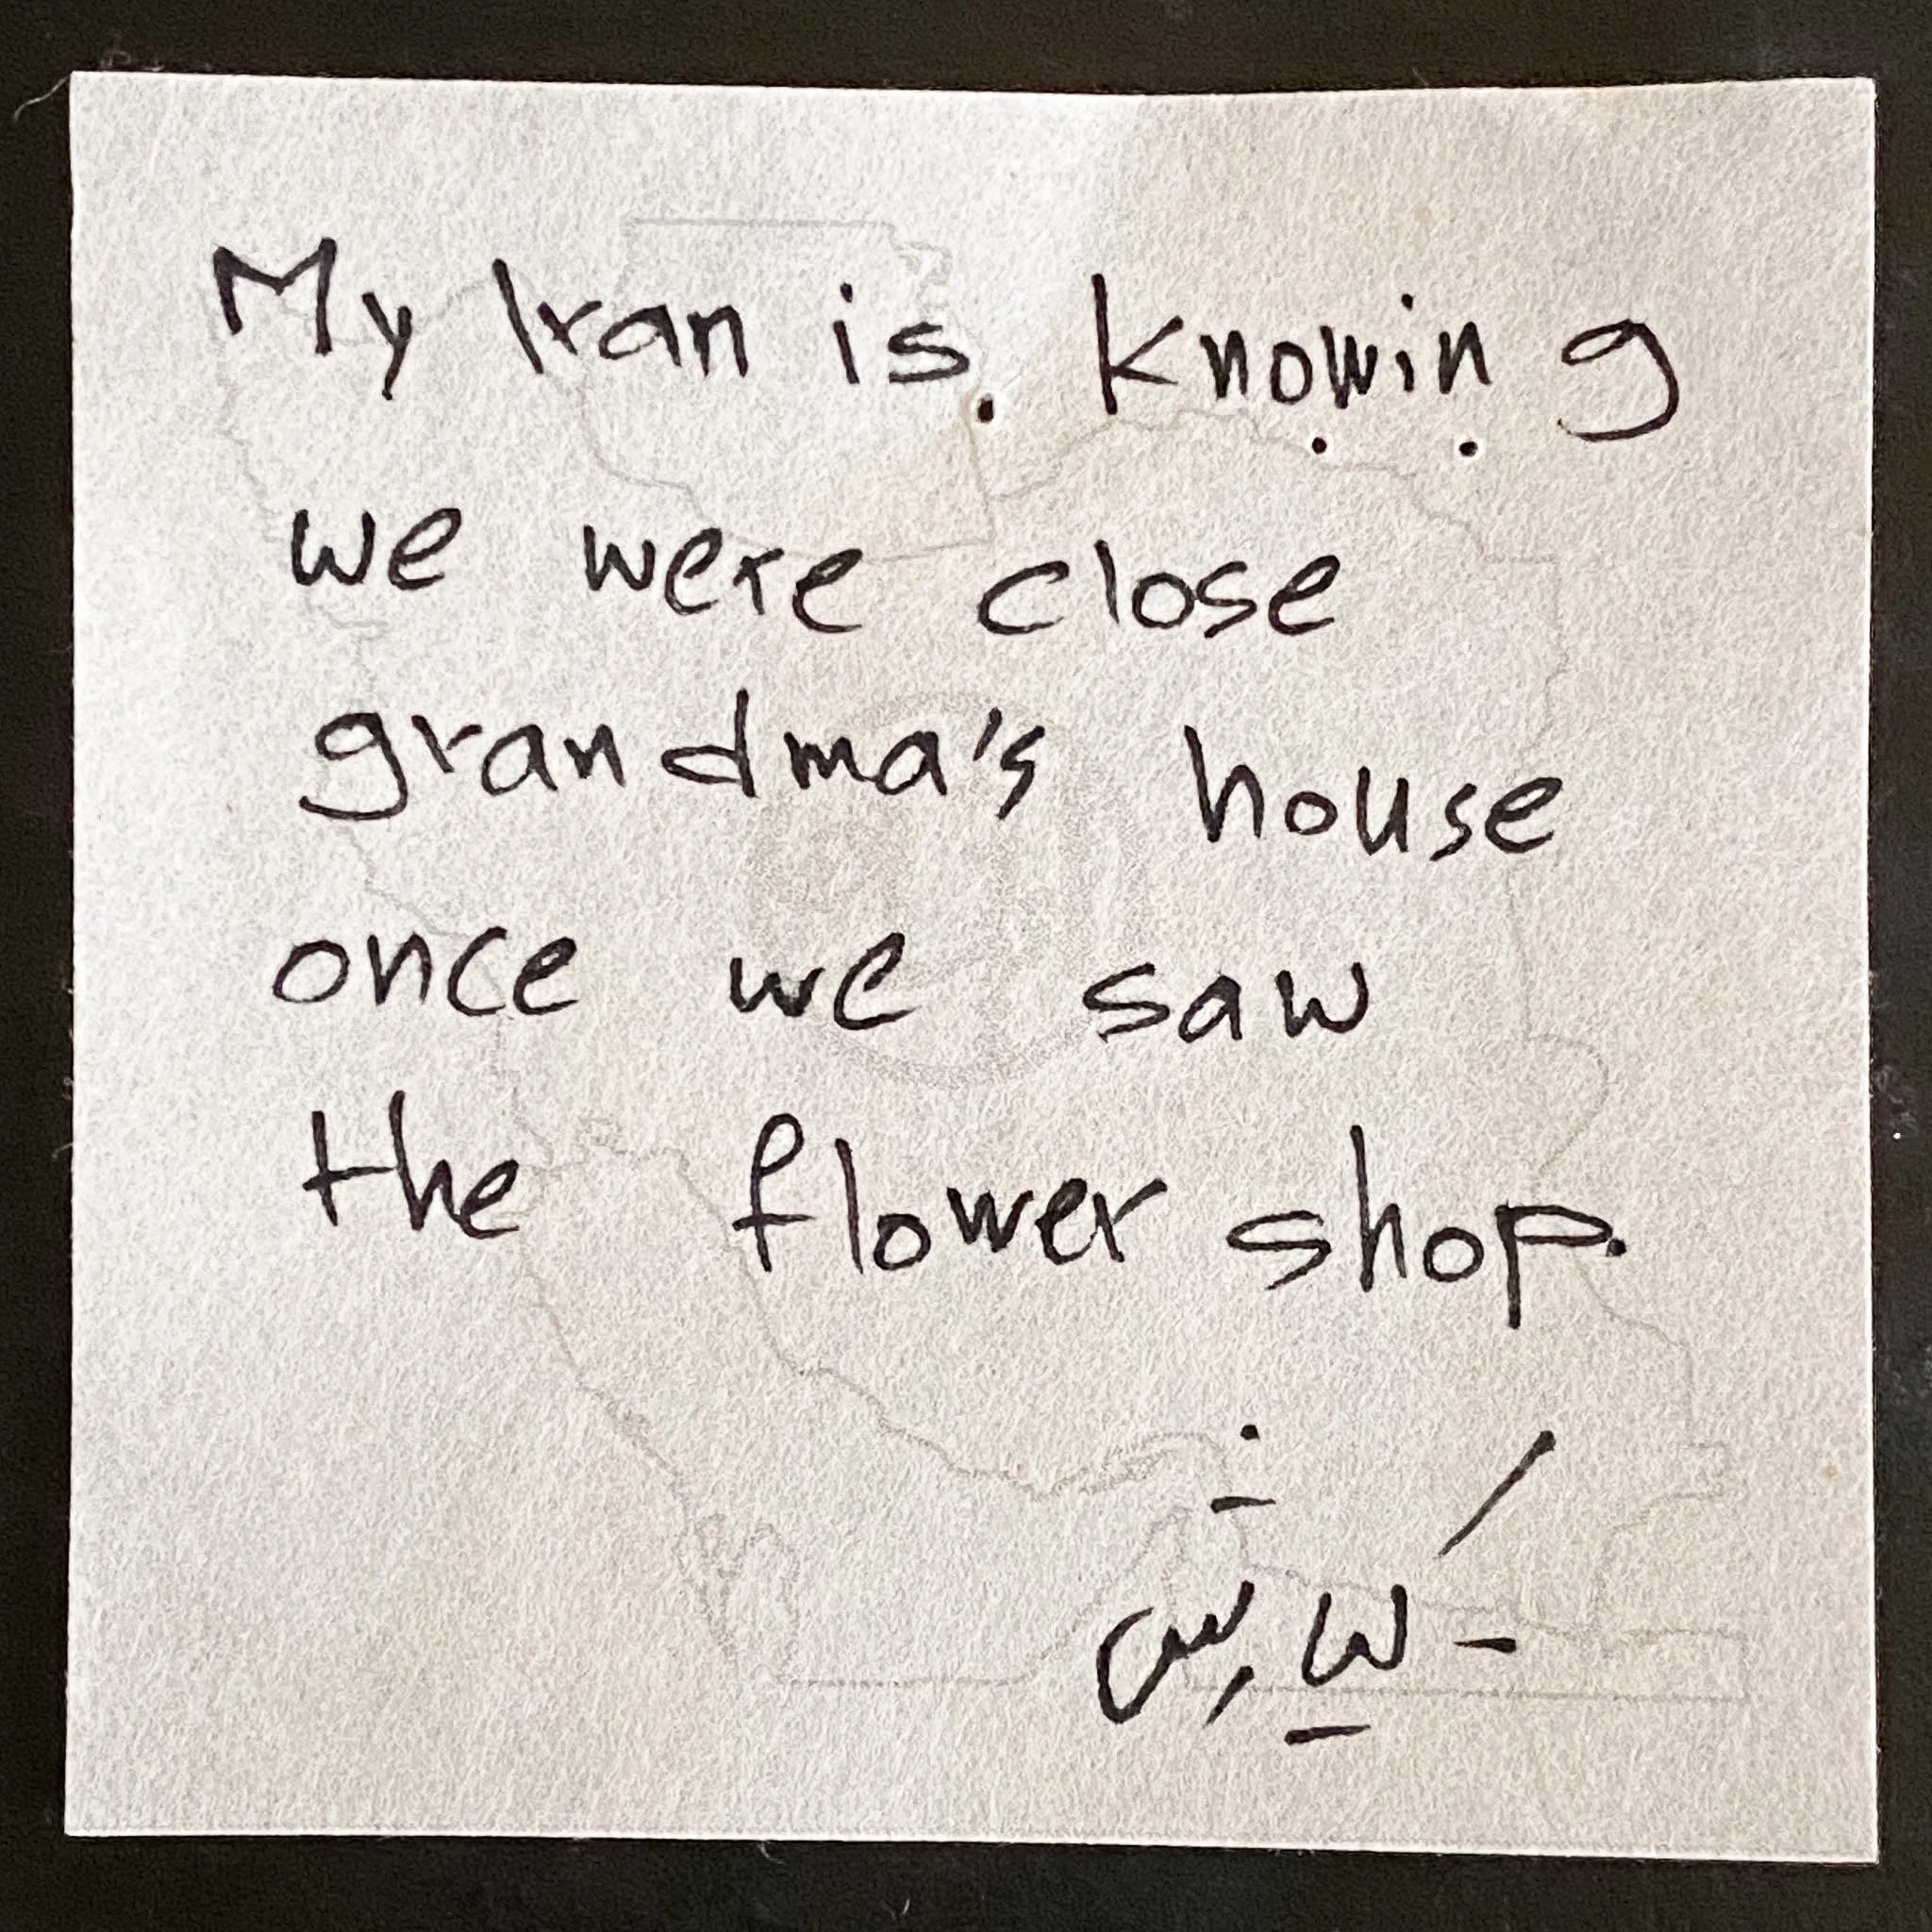 My Iran is... knowing
we were close
grandma's house
once we saw
the flower shop.
- کیارش